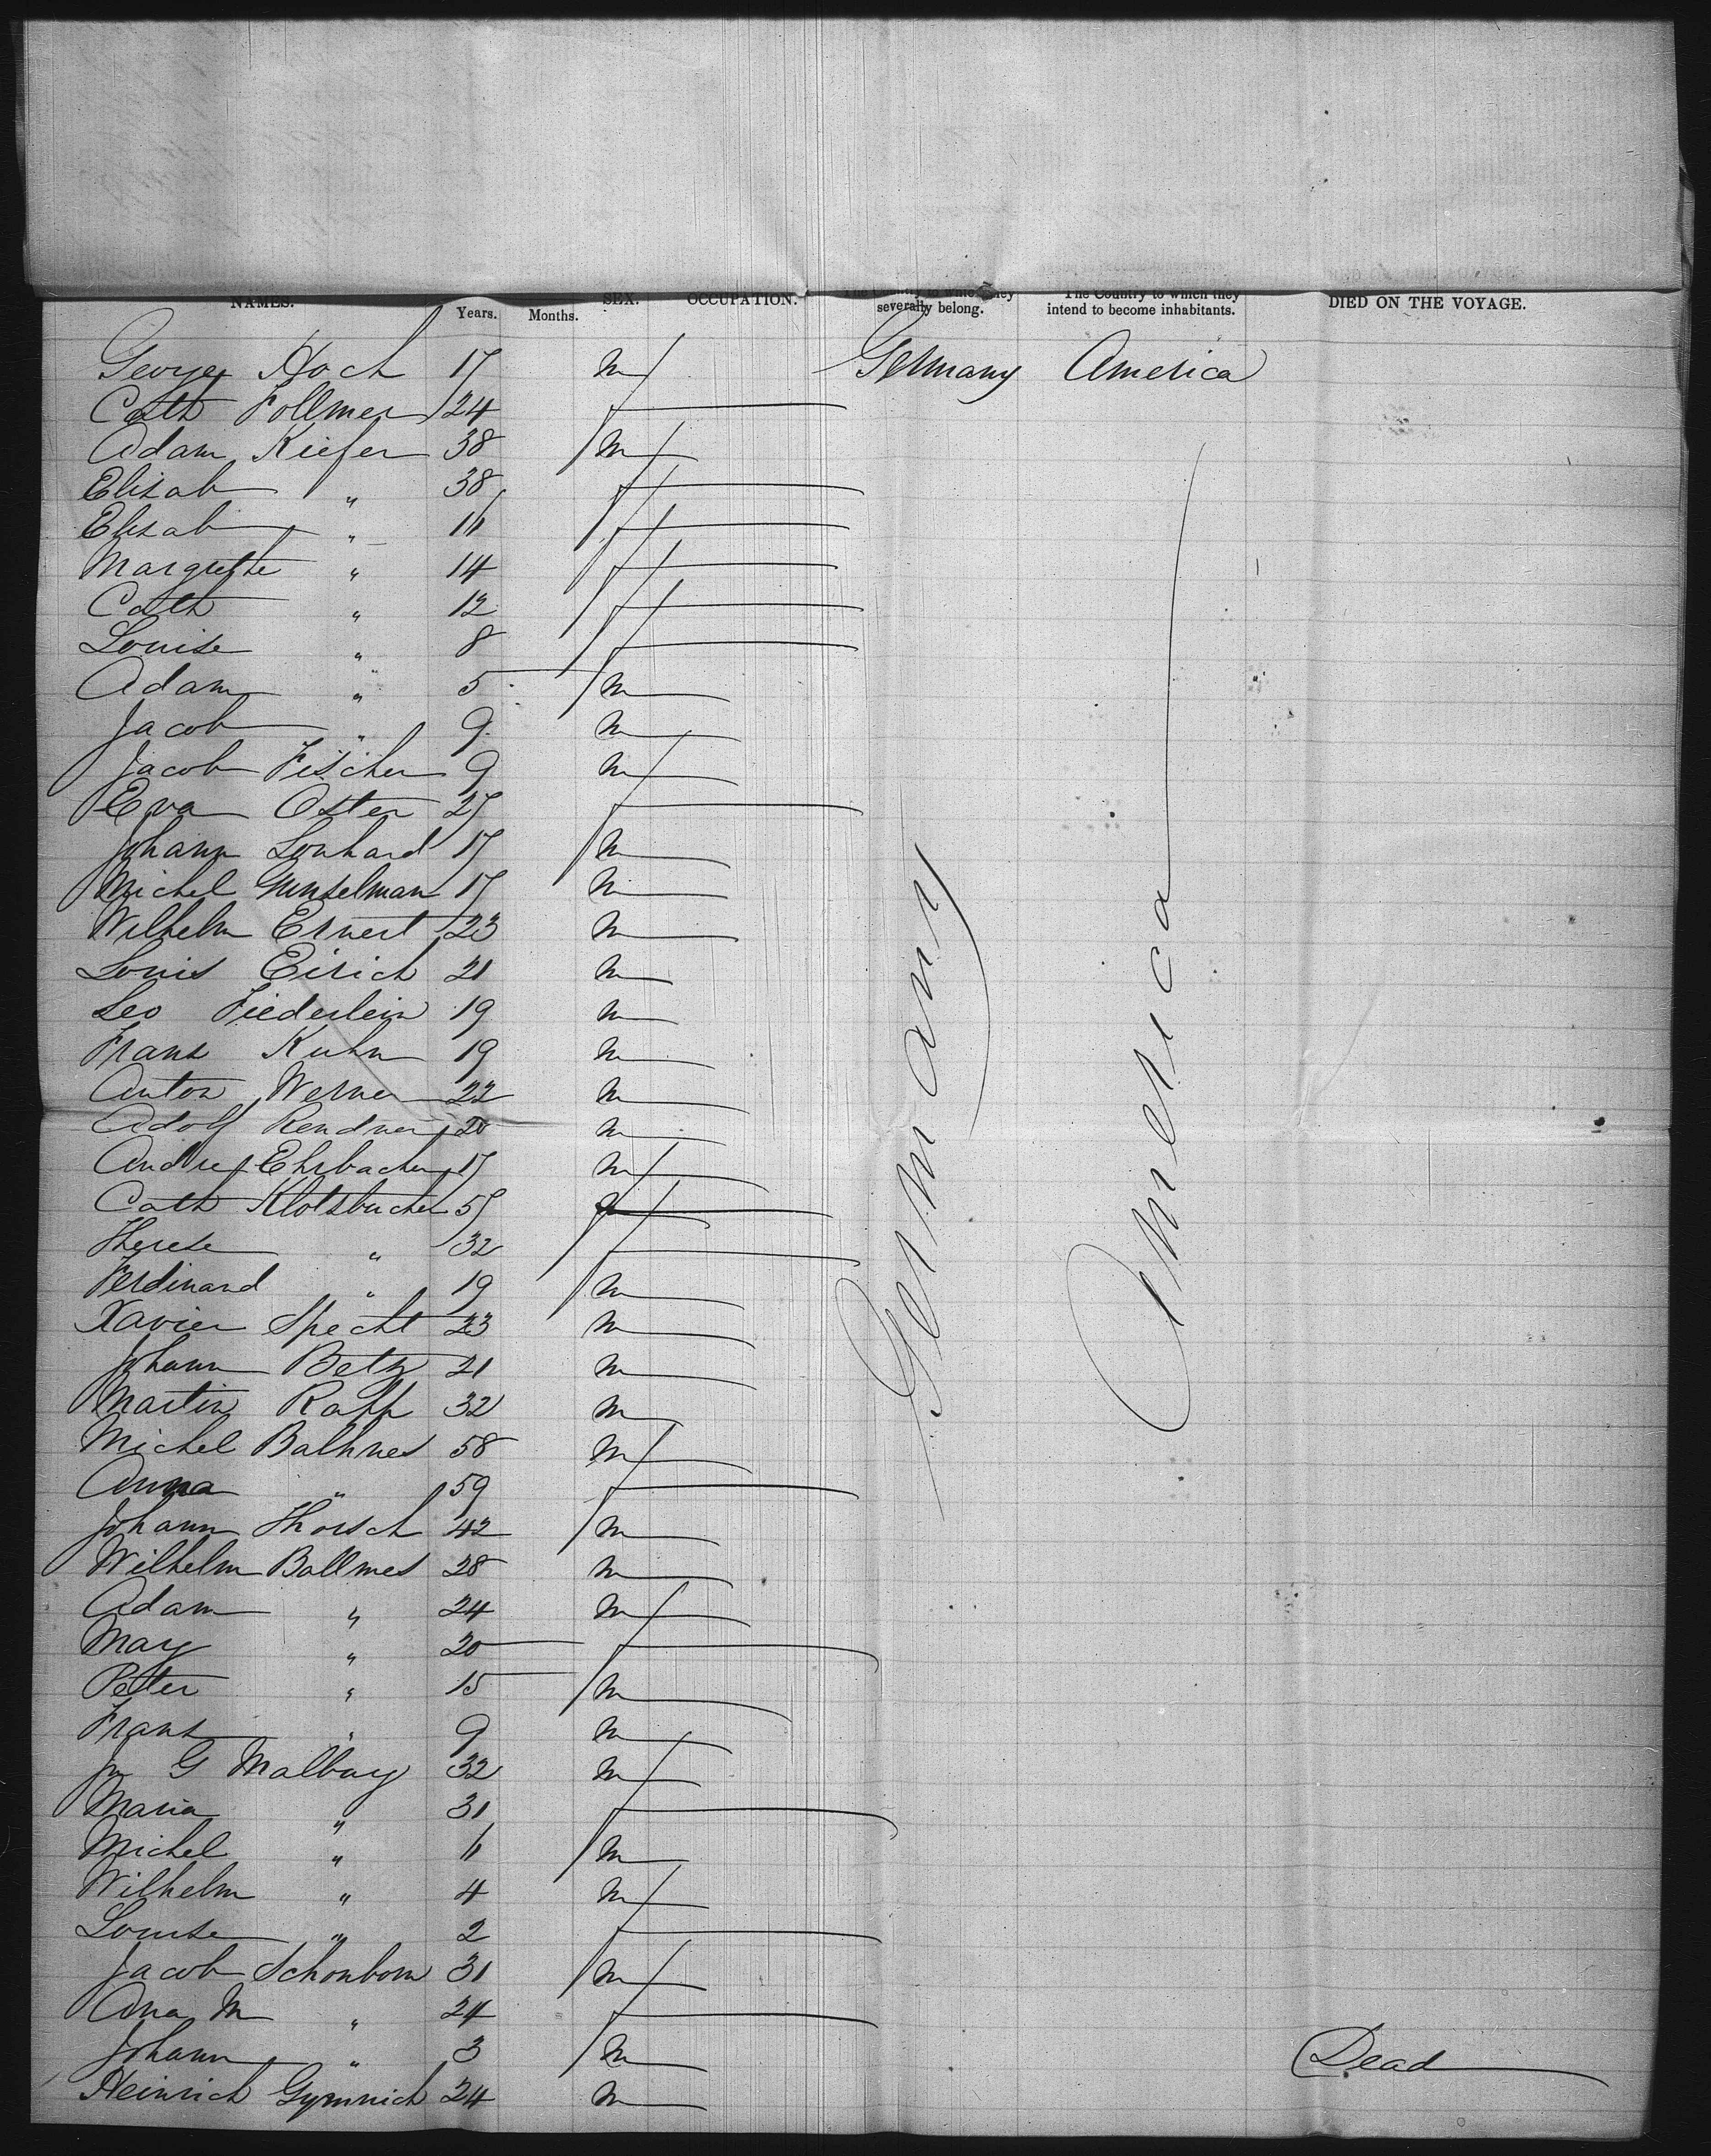 NAMES. SEX. OCCUPATION. The Country to which they The Country to which they DIED ON THE VOYAGE.
Years. Months. severally belong. intend to become inhabitants.
George Hoch 17 m Germany America
Cath Follmer 24 f
Adam Kiefer 38 m
Elisab " 38 f
Elisab " 16 f
Margrethe " 14 f
Cath " 12 f
Louise " 8 f
Adam " 5 m
Jacob " 9 m
Jacob Fischer 9 m
Eva Oster 27 f
Johann Lonhard 17 m
Michel Gunselman 17 m
Wilhelm Ernert 23 m
Louis Eirich 21 m
Leo Fiederlein 19 m
Frans Kuhn 19 m
Anton Werner 22 m
Adolf Rendner 20 m
Andre Ehrbacher 17 m
Cath Klotsbucher 57 f
Therese " 32 f
Ferdinand " 19 m
Xavier Specht 23 m
Johann Betz 21 m
Martin Rapp 32 m
Michel Balhnes 58 m
Anna " 59 f
Johann Horsch 42 m
Wilhelm Ballmes 28 m
Adam " 24 m
Mary " 20 f
Peter " 15 m
Frans " 9 m
G Malbay 32 m
Maria " 31 f
Michel " 6 m
Wilhelm " 4 m
Louise " 2 f
Jacob Schonborn 31 m
Ana M " 24 f
Johann " 3 m Dead
Heinrich Gymnich 24 m
Germany
America